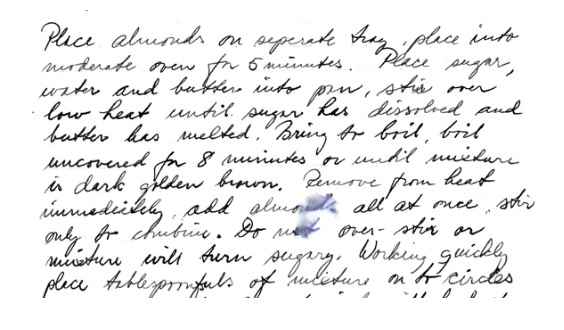 Place almonds on seperate tray, place into
moderate oven for 5 minutes. Place sugar,
water and butter into pan, stir over
low heat until sugar has dissolved and
butter has melted. Bring to boil, boil
uncovered for 8 minutes or until mixture
is dark golden brown. Remove from heat
immediately, add almonds all at once, stir
only to combine. Do not over-stir or
mixture will turn sugary. Working quickly
place tablespoonfuls of mixture on to circles